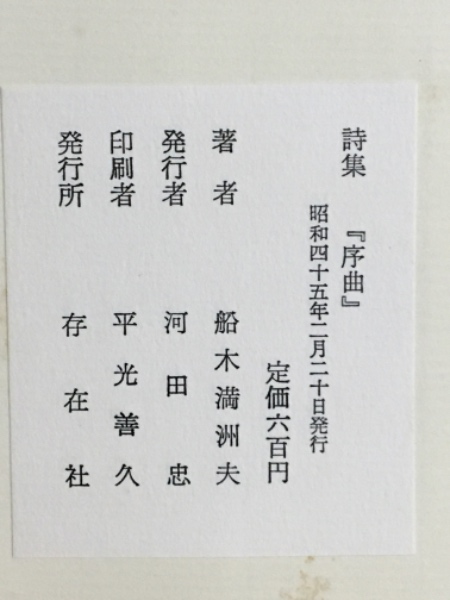 詩集 『序曲』
昭和四十五年二月二十日発行
定価六百円
著者 船木満洲夫
発行者 河田忠
印刷者 平光善久
発行所 存在社